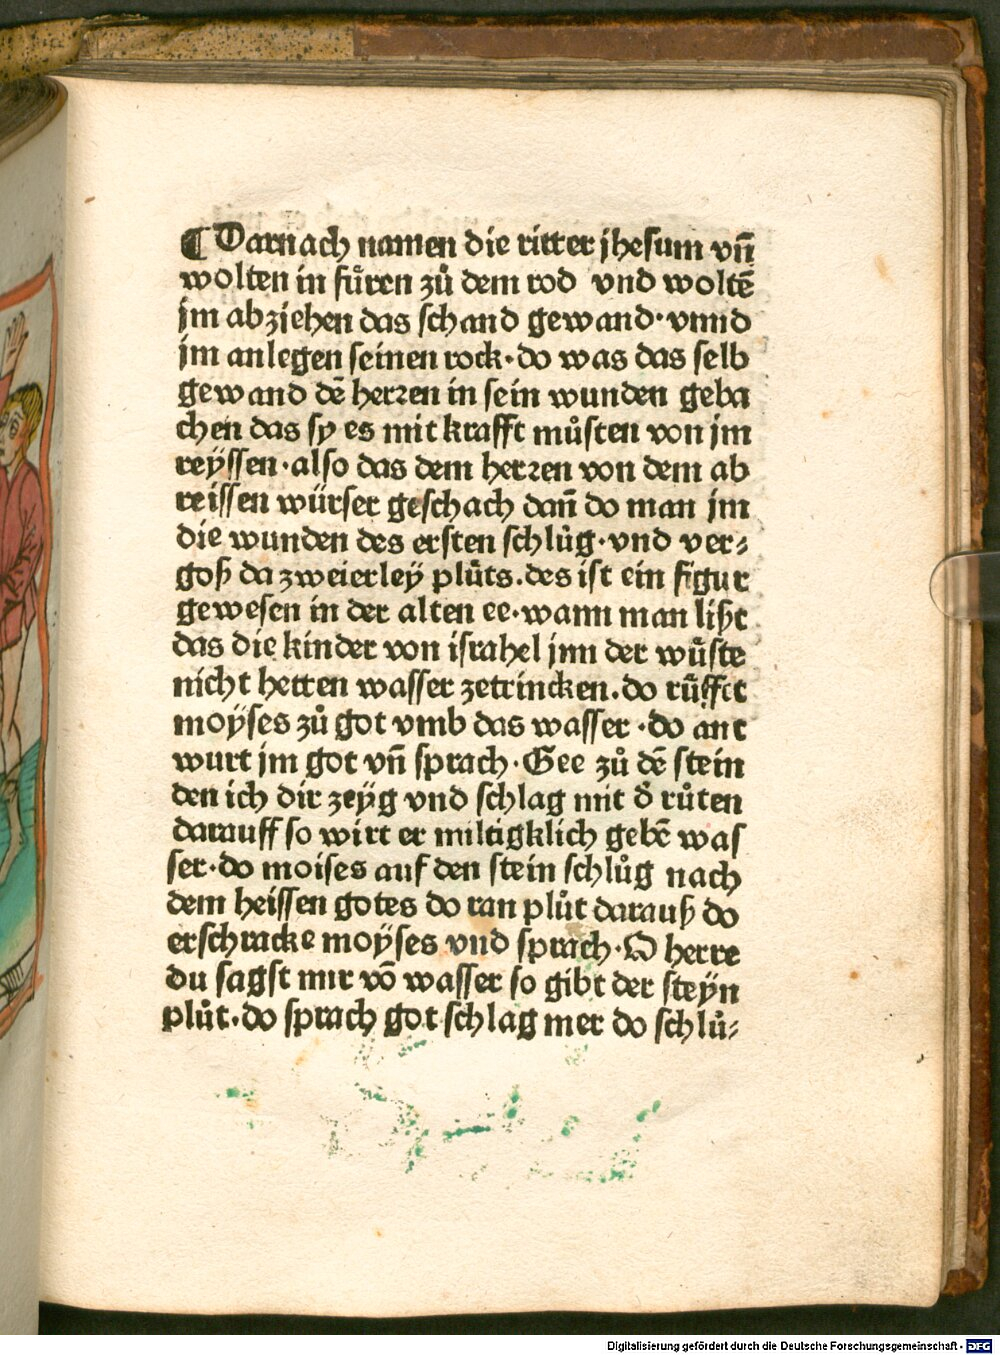 ¶ Darnach namen die ritter jhesum vn̄
wolten in fuͤren zuͦ dem tod vnd woltē
jm abziehen das schand gewand· vnnd
jm anlegen seinen rock· do was das selb
gewand dē herꝛen in sein wunden geba
chen das sy es mit krafft muͦsten von jm
reÿssen· also das dem herꝛen von dem ab
reissen würser geschach dan̄ do man jm
die wunden des ersten schluͦg· vnd ver⸗
goß da zweierleÿ pluͦts. des ist ein figur
gewesen in der alten ee· wann man lißt
das die kinder von israhel jnn der wuͤste
nicht hetten wasser zetrincken. do ruͤffet
moÿses zuͦ got vmb das wasser · do ant
wurt jm got vn̄ sprach· Gee zuͦ dē stein
den ich dir zeÿg vnd schlag mit đ ruͦten
darauff so wirt er miltigklich gebē was
ser· do moises auf den stein schluͦg nach
dem heissen gotes do ran pluͦt darauß do
erschracke moÿses vnd sprach· O herre
du sagst mir vō wasser so gibt der steÿn
pluͦt· do sprach got schlag mer do schluͦ⸗
Digitalisierung gefördert durch die Deutsche Forschungsgemeinschaft - DFG